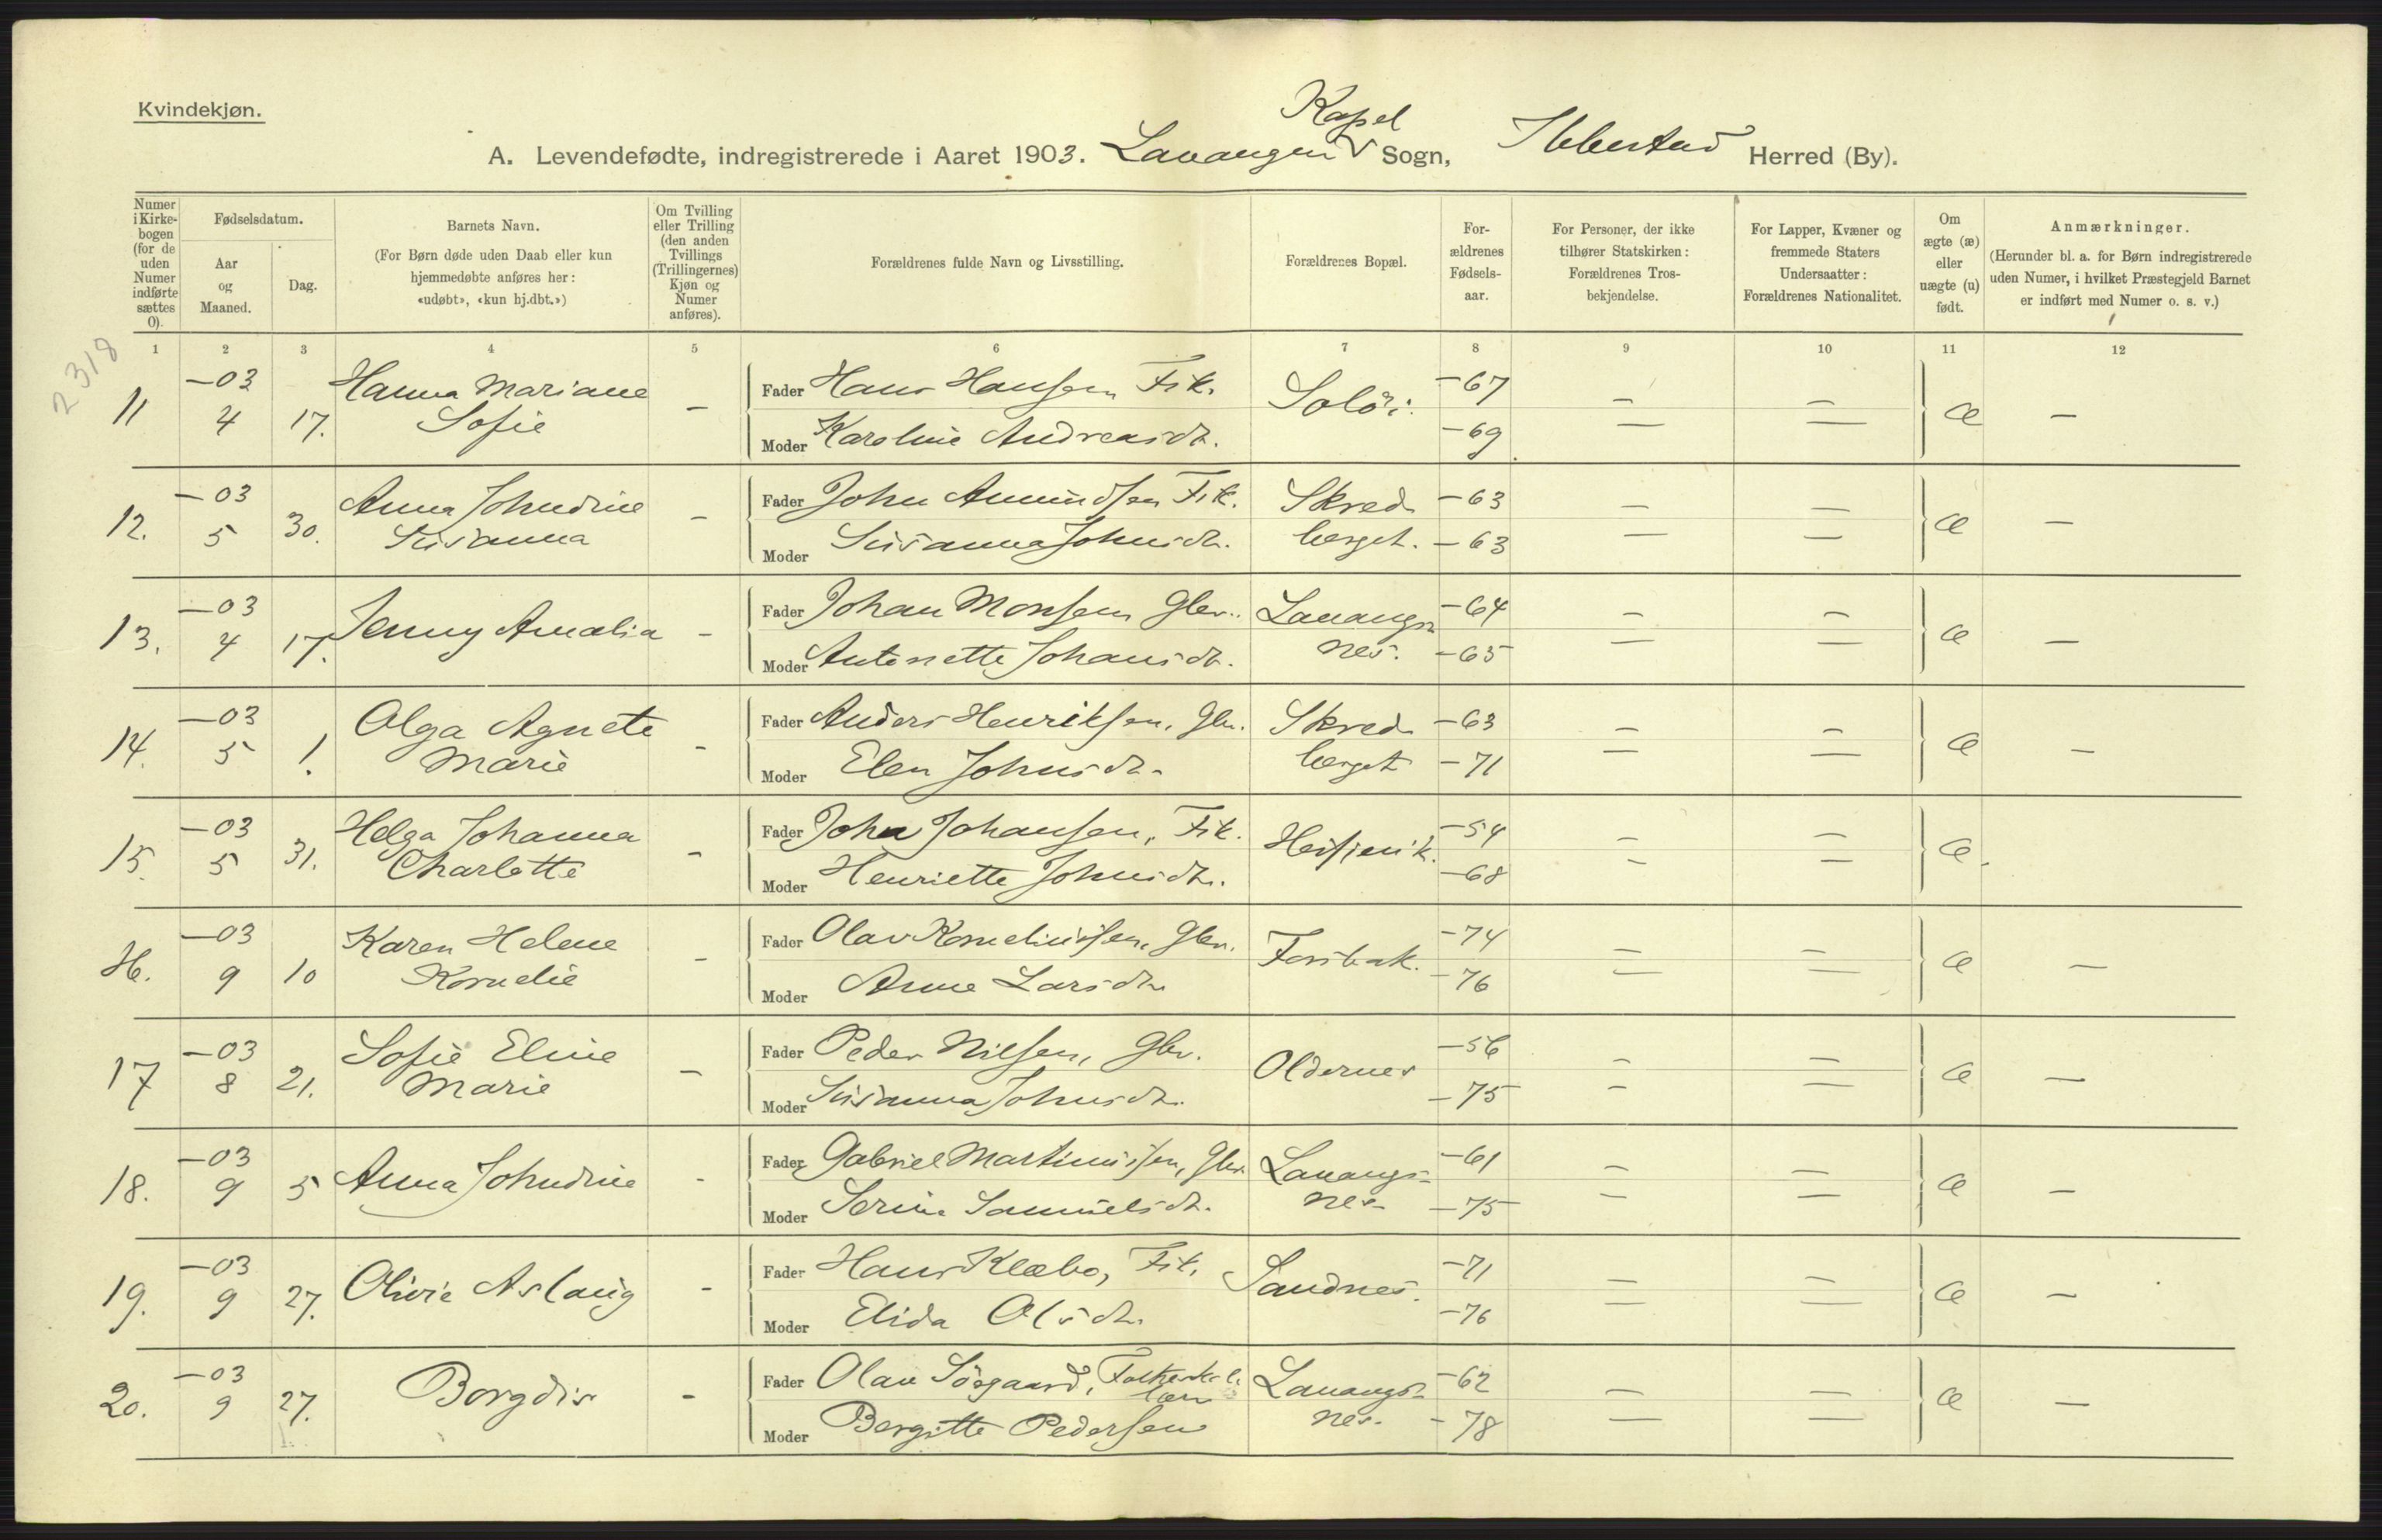 Kvindekjøn.
Kapel
A. Levendefødte, indregistrerede i Aaret 1903. Lavangen Sogn, Ibbestad Herred (By).
Numer i Kirkebogen (for de uden Numer indførte sættes 0).
Fødselsdatum.
Aar og Maaned.
Dag.
Barnets Navn.
(For Børn døde uden Daab eller kun hjemmedøbte anføres her: «udøbt», «kun hj.dbt.»)
Om Tvilling eller Trilling (den anden Tvillings (Trillingernes) Kjøn og Numer anføres).
Forældrenes fulde Navn og Livsstilling.
Forældrenes Bopæl.
Forældrenes Fødselsaar.
For Personer, der ikke tilhører Statskirken: Forældrenes Trosbekjendelse.
For Lapper, Kvæner og fremmede Staters Undersaatter: Forældrenes Nationalitet.
Om ægte (æ) eller uægte (u) født.
Anmærkninger.
(Herunder bl. a. for Børn indregistrerede uden Numer, i hvilket Præstegjeld Barnet er indført med Numer o. s. v.)
1 2 3 4 5 6 7 8 9 10 11 12
2318
11 -03 4 17. Hanna Mariane Sofie - Fader Hans Hansen Fik. Solöi. -67 - - æ -
Moder Karoline Andreasdt. -69 - -
12. -03 5 30. Anna Johndine Susanna - Fader John Amundsen Fik. Skredberget. -63 - - æ -
Moder Susanna Johnsdt. -63 - -
13. -03 4 17. Jenny Amalia - Fader Johan Monsen Gbr. Lavangsnes. -64 - - æ -
Moder Antonette Johansdt. -65 - -
14. -03 5 1. Olga Agnete Marie - Fader Anders Henriksen, Gbr. Skredberget -63 - - æ -
Moder Elen Johnsdt. -71 - -
15. -03 5 31. Helga Johanna Charlotte - Fader John Johansen, Fik. -54 - - æ.
Moder Henriette Johnsdt. -68 - -
16. -03 9 10 Karen Helene Kornelie - Fader Olav Korneliussen, Gbr. Fosbak. -74 - - æ -
Moder Anne Larsdt. -76 - -
17 -03 8 21. Sofie Eline Marie - Fader Peder Nilsen, Gbr. Oldernes -56 - - æ -
Moder Susanna Johnsdt. -75 - -
18. -03 9 5 Anna Johndine - Fader Gabriel Martinussen, Gbr. Lavangsnes -61 - - æ -
Moder Serine Samuelsdt. -75 - -
19. -03 9 27. Olivie Aslaug - Fader Hans Klæbo, Fik. Sandnes. -71 - - æ -
Moder Elida Olsdt. -76 - -
20. -03 9 27. Borgdis - Fader Olav Sörgaard, Lavangsnes. -62 - - æ -
Moder Bergitte Pedersen -78 - -